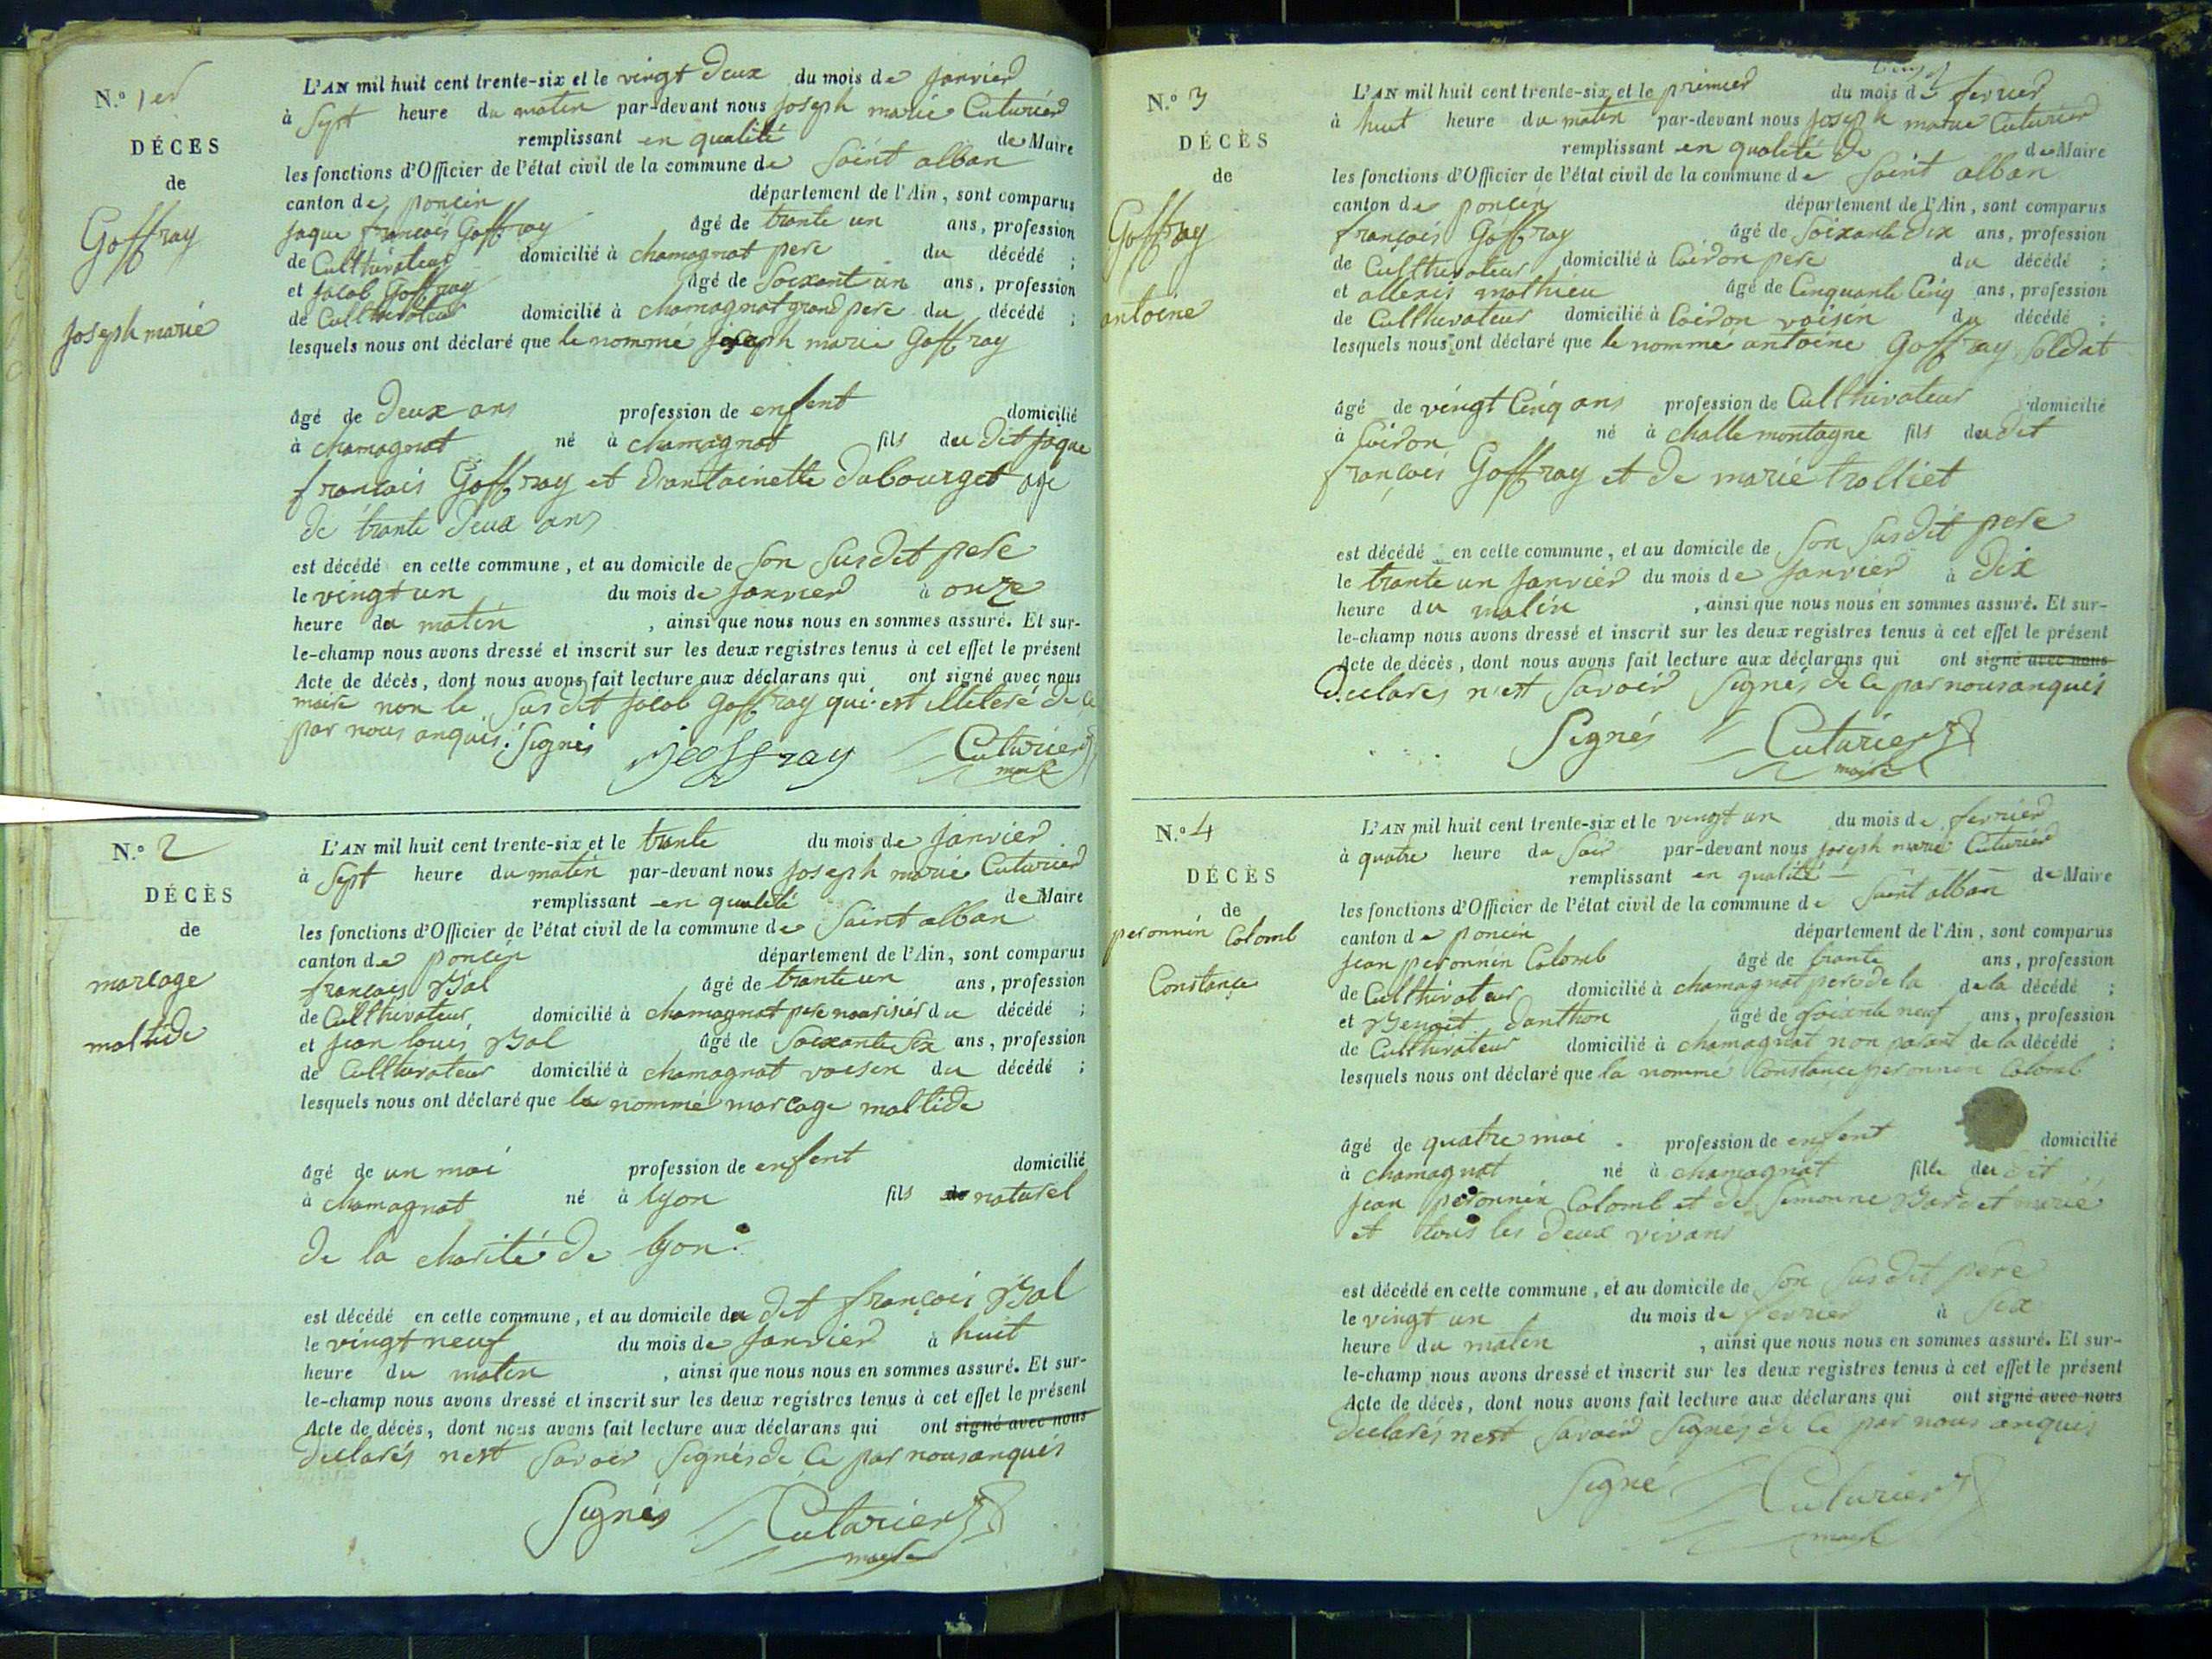 N.º 1er
DÉCÈS
de
Goffray
Joseph marie
L'AN mil huit cent trente-six et le vingt deux du mois de janvier
à Sept heure du matin par-devant nous joseph marie Cuturier
remplissant en qualité de Maire
les fonctions d'Officier de l'état civil de la commune de Saint alban
canton de poncin département de l'Ain, sont comparus
jaque françois Goffray âgé de trante un ans, profession
de Culthivateur domicilié à chamagnat pere du décédé ;
et jacob Goffray âgé de Soixant un ans, profession
de Culthivateur domicilié à chamagnat grand pere du décédé ;
lesquels nous ont déclaré que le nommé joseph marie Goffray
âgé de deux ans profession de enfent domicilié
à chamagnat né à chamagnat fils du dit jaque
françois Goffray et dantoinette dubourget age
de trante deux ans
est décédé en cette commune, et au domicile de Son Susdit pere
le vingt un du mois de janvier à onze
heure du matin , ainsi que nous nous en sommes assuré. Et sur-
le-champ nous avons dressé et inscrit sur les deux registres tenus à cet effet le présent
Acte de décès, dont nous avons fait lecture aux déclarans qui ont signé avec nous
maire non le Susdit jacob Goffray qui est illeteré de ce
par nous anquis. Signés Jeoffray Cuturier
maire
N.º 2
DÉCÈS
de
marcage
maltide
L'AN mil huit cent trente-six et le trante du mois de janvier
à Sept heure du matin par-devant nous joseph marie Cuturier
remplissant en qualité de Maire
les fonctions d'Officier de l'état civil de la commune de Saint alban
canton de poncin département de l'Ain, sont comparus
françois Bal âgé de trante un ans, profession
de Culthivateur domicilié à chamagnat pere nourisier du décédé ;
et jean louis Bal âgé de Soixante Six ans, profession
de Culthivateur domicilié à chamagnat voisin du décédé ;
lesquels nous ont déclaré que le nommé marcage maltide
âgé de un moi profession de enfent domicilié
à chamagnat né à lyon fils naturel
de la charité de lyon.
est décédé en cette commune, et au domicile du dit françois Bal
le vingt neuf du mois de janvier à huit
heure du matin , ainsi que nous nous en sommes assuré. Et sur-
le-champ nous avons dressé et inscrit sur les deux registres tenus à cet effet le présent
Acte de décès, dont nous avons fait lecture aux déclarans qui ont signé avec nous
declarés nest Savoir Signés de Ce par nous anquis
Signés Cuturier
maire
N.º 3
DÉCÈS
de
Goffray
antoine
L'AN mil huit cent trente-six et le premier du mois de fevrier
à huit heure du matin par-devant nous joseph marie Cuturier
remplissant en qualité de de Maire
les fonctions d'Officier de l'état civil de la commune de Saint alban
canton de poncin département de l'Ain, sont comparus
françois Goffray âgé de Soixante dix ans, profession
de Culthivateur domicilié à Coiron pere du décédé ;
et allexis mathieu âgé de Cinquante Cinq ans, profession
de Culthivateur domicilié à Coiron voisin du décédé ;
lesquels nous ont déclaré que le nommé antoine Goffray Soldat
âgé de vingt Cinq ans profession de Culthivateur domicilié
à Coiron né à challe montagne fils du dit
françois Goffray et de marie trolliet
est décédé en cette commune, et au domicile de Son Susdit pere
le trante un janvier du mois de janvier à dix
heure du matin , ainsi que nous nous en sommes assuré. Et sur-
le-champ nous avons dressé et inscrit sur les deux registres tenus à cet effet le présent
Acte de décès, dont nous avons fait lecture aux déclarans qui ont signé avec nous
declarés nest Savoir Signés de Ce par nous anquis
Signés Cuturier
maire
N.º 4
DÉCÈS
de
peronnin Colomb
Constance
L'AN mil huit cent trente-six et le vingt un du mois de fevrier
à quatre heure du Soir par-devant nous joseph marie Cuturier
remplissant en qualité de Maire
les fonctions d'Officier de l'état civil de la commune de Saint alban
canton de poncin département de l'Ain, sont comparus
jean peronnin Colomb âgé de trante ans, profession
de Culthivateur domicilié à chamagnat pere de la de la décédé ;
et Benoit danthon âgé de Soixante neuf ans, profession
de Culthivateur domicilié à chamagnat non parant de la décédé ;
lesquels nous ont déclaré que la nommé Constance peronnin Colomb
âgé de quatre moi profession de enfent domicilié
à chamagnat né à chamagnat fille du dit
jean peronnin Colomb et de Simonne Bardet marié
et tous les deux vivans
est décédé en cette commune, et au domicile de Son Susdit pere
le vingt un du mois de fevrier à Six
heure du matin , ainsi que nous nous en sommes assuré. Et sur-
le-champ nous avons dressé et inscrit sur les deux registres tenus à cet effet le présent
Acte de décès, dont nous avons fait lecture aux déclarans qui ont signé avec nous
declarés nest Savoir Signés de Ce par nous anquis
Signé Cuturier
maire